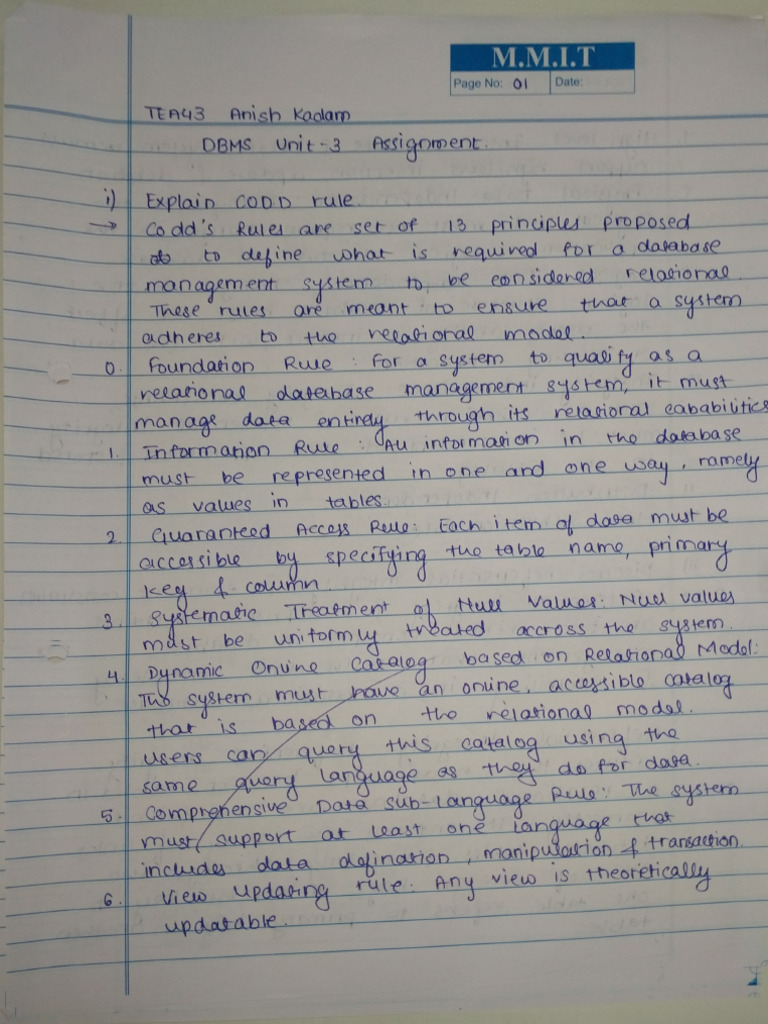 M.M.I.T
Page No: 01 Date:
TEA43 Anish Kadam
DBMS Unit-3 Assignment.
i) Explain CODD rule
→ Codd's Rules are set of 13 principles proposed
to define what is required for a database
management system to be considered relational.
These rules are meant to ensure that a system
adheres to the relational model.
0. Foundation Rule : For a system to qualify as a
relational database management system, it must
manage data entirely through its relational cababilities
1. Information Rule : All information in the database
must be represented in one and one way, namely
as values in tables.
2. Guaranteed Access Rule: Each item of data must be
accessible by specifying the table name, primary
key & column.
3. Systematic Treatment of Null Values: Null values
must be uniformly treated accross the system.
4. Dynamic Online Catalog based on Relational Model:
The system must have an online, accessible catalog
that is based on the relational model.
users can query this catalog using the
same query language as they do for data.
5. Comprehensive Data sub-language Rule: The system
must support at least one language that
includes data defination, manipulation & transaction.
6. View updating rule. Any view is theoretically
updatable.